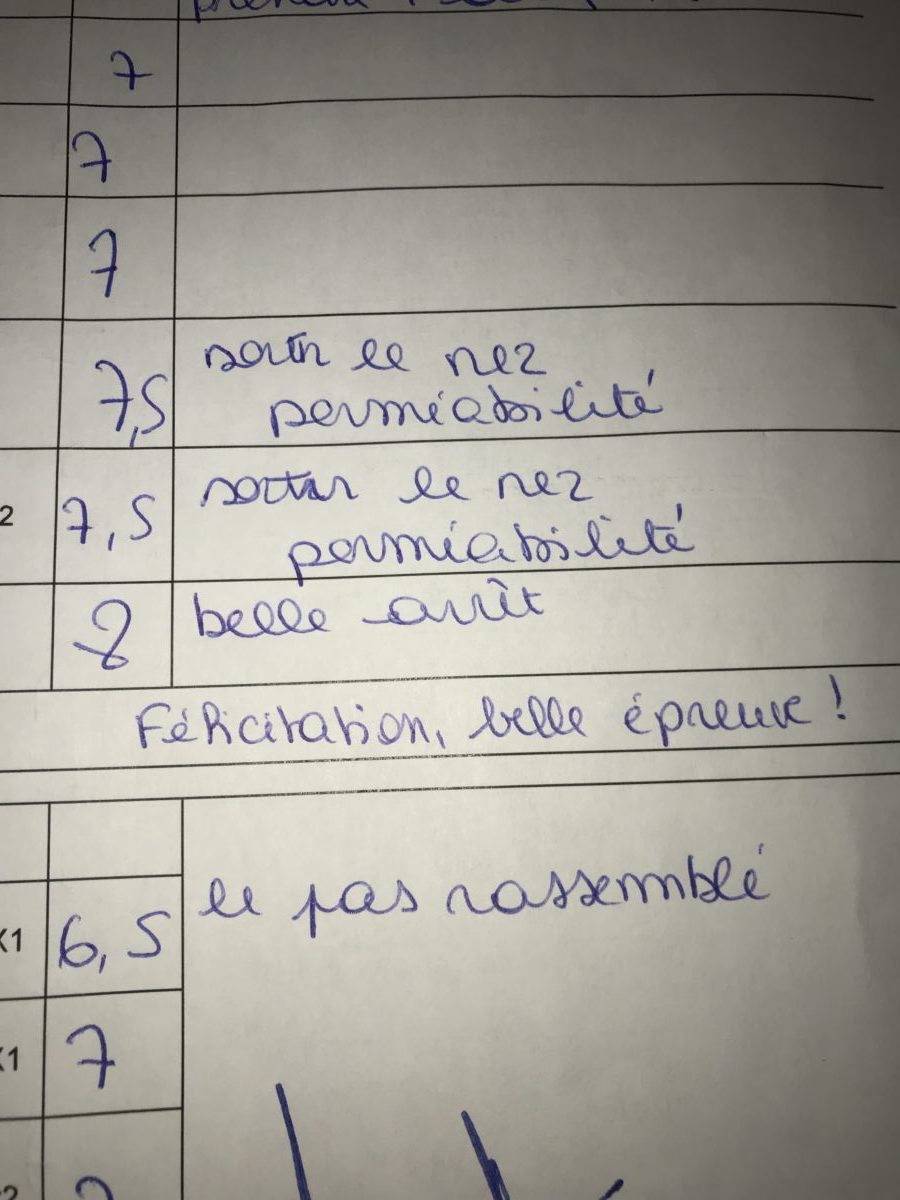 7
7
7
7,5 sortir le nez
perméabilité
2 7,5 sortir le nez
perméabilité
8 belle arrêt
Félicitation, belle épreuve !
le pas rassemblé
X1 6,5
X1 7